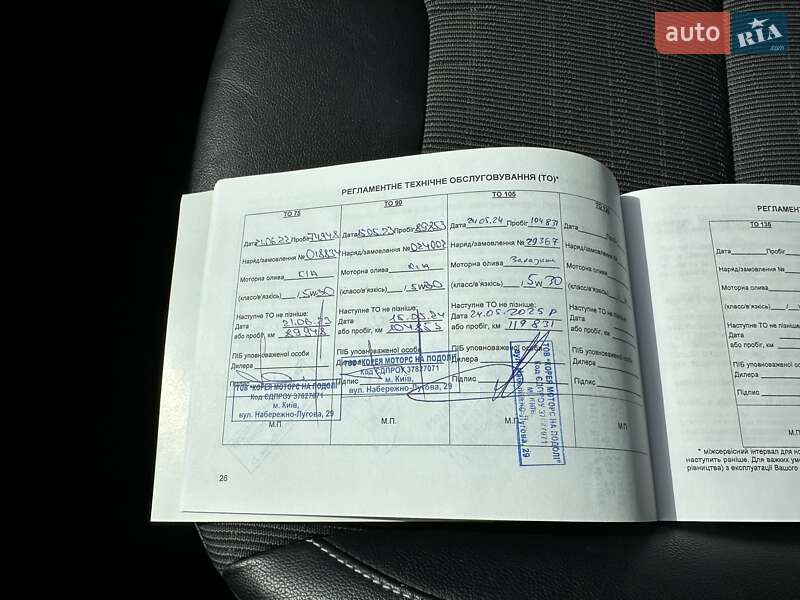 auto RIA
.com
РЕГЛАМЕНТНЕ ТЕХНІЧНЕ ОБСЛУГОВУВАННЯ (ТО)*
ТО 75
Дата 21.06.22 Пробіг 74948
Наряд/замовлення № 018834
Моторна олива KIA
(класс/в'язкісь) / 5w30
Наступне ТО не пізніше:
Дата 21.06.23
або пробіг, км 89948
ПІБ уповноваженої особи
Дилера
Підпис
ТОВ "КОРЕЯ МОТОРС НА ПОДОЛІ"
Код ЄДПРОУ 37827071
м. Київ,
вул. Набережно-Лугова, 29
М.П.
ТО 90
Дата 15.05.23 Пробіг 89853
Наряд/замовлення № 024002
Моторна олива KIA
(класс/в'язкісь) / 5w30
Наступне ТО не пізніше:
Дата 15.05.24
або пробіг, км 104853
ПІБ уповноваженої особи
ТОВ "КОРЕЯ МОТОРС НА ПОДОЛІ"
Код ЄДПРОУ 37827071
м. Київ,
вул. Набережно-Лугова, 29
Підпис
М.П.
ТО 105
Дата 24.05.24 Пробіг 104831
Наряд/замовлення № 29367
Моторна олива
(класс/в'язкісь) / 5w30
Наступне ТО не пізніше:
Дата 24.05.2025 р
або пробіг, км 119831
ПІБ уповноваженої особи
Дилера
Підпис
ТОВ "КОРЕЯ МОТОРС НА ПОДОЛІ"
Код ЄДПРОУ 37827071
м. Київ,
вул. Набережно-Лугова, 29
М.П.
Дата
Наряд/замовлення
Моторна олива
(класс/в'язкісь)
Наступне ТО не пізніше:
Дата
або пробіг, км
ПІБ уповноваженої особи
Дилера
Підпис
М.П.
26
РЕГЛАМЕНТ
ТО 135
Дата Пробіг
Наряд/замовлення №
Моторна олива
(класс/в'язкісь) /
Наступне ТО не пізніше:
Дата
або пробіг, км
ПІБ уповноваженої особи
Дилера
Підпис
М.П.
* міжсервісний інтервал для
наступить раніше. Для важких
рівництва) з експлуатації Вашого